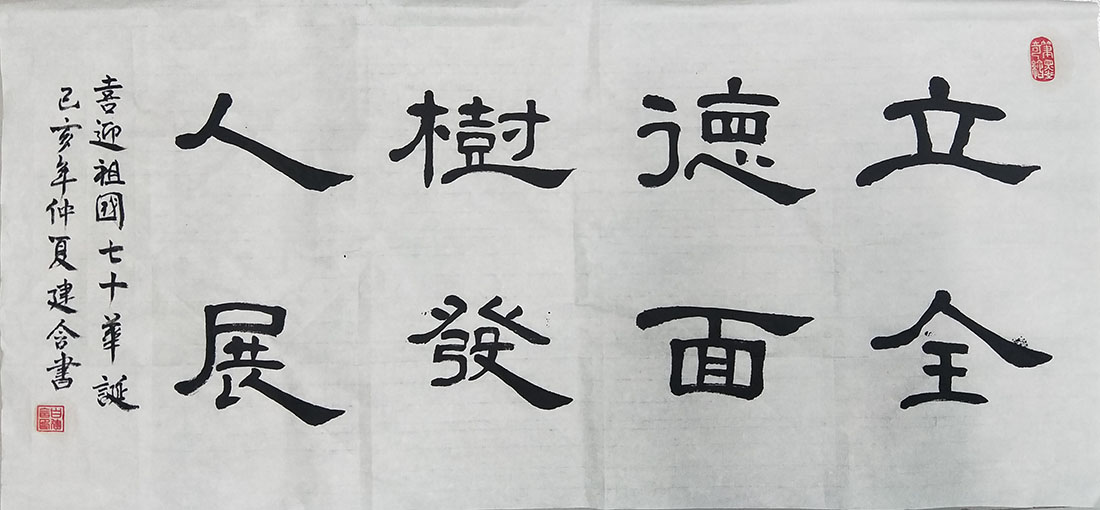 立德樹人
全面發展
喜迎祖國七十華誕
己亥年仲夏建合書